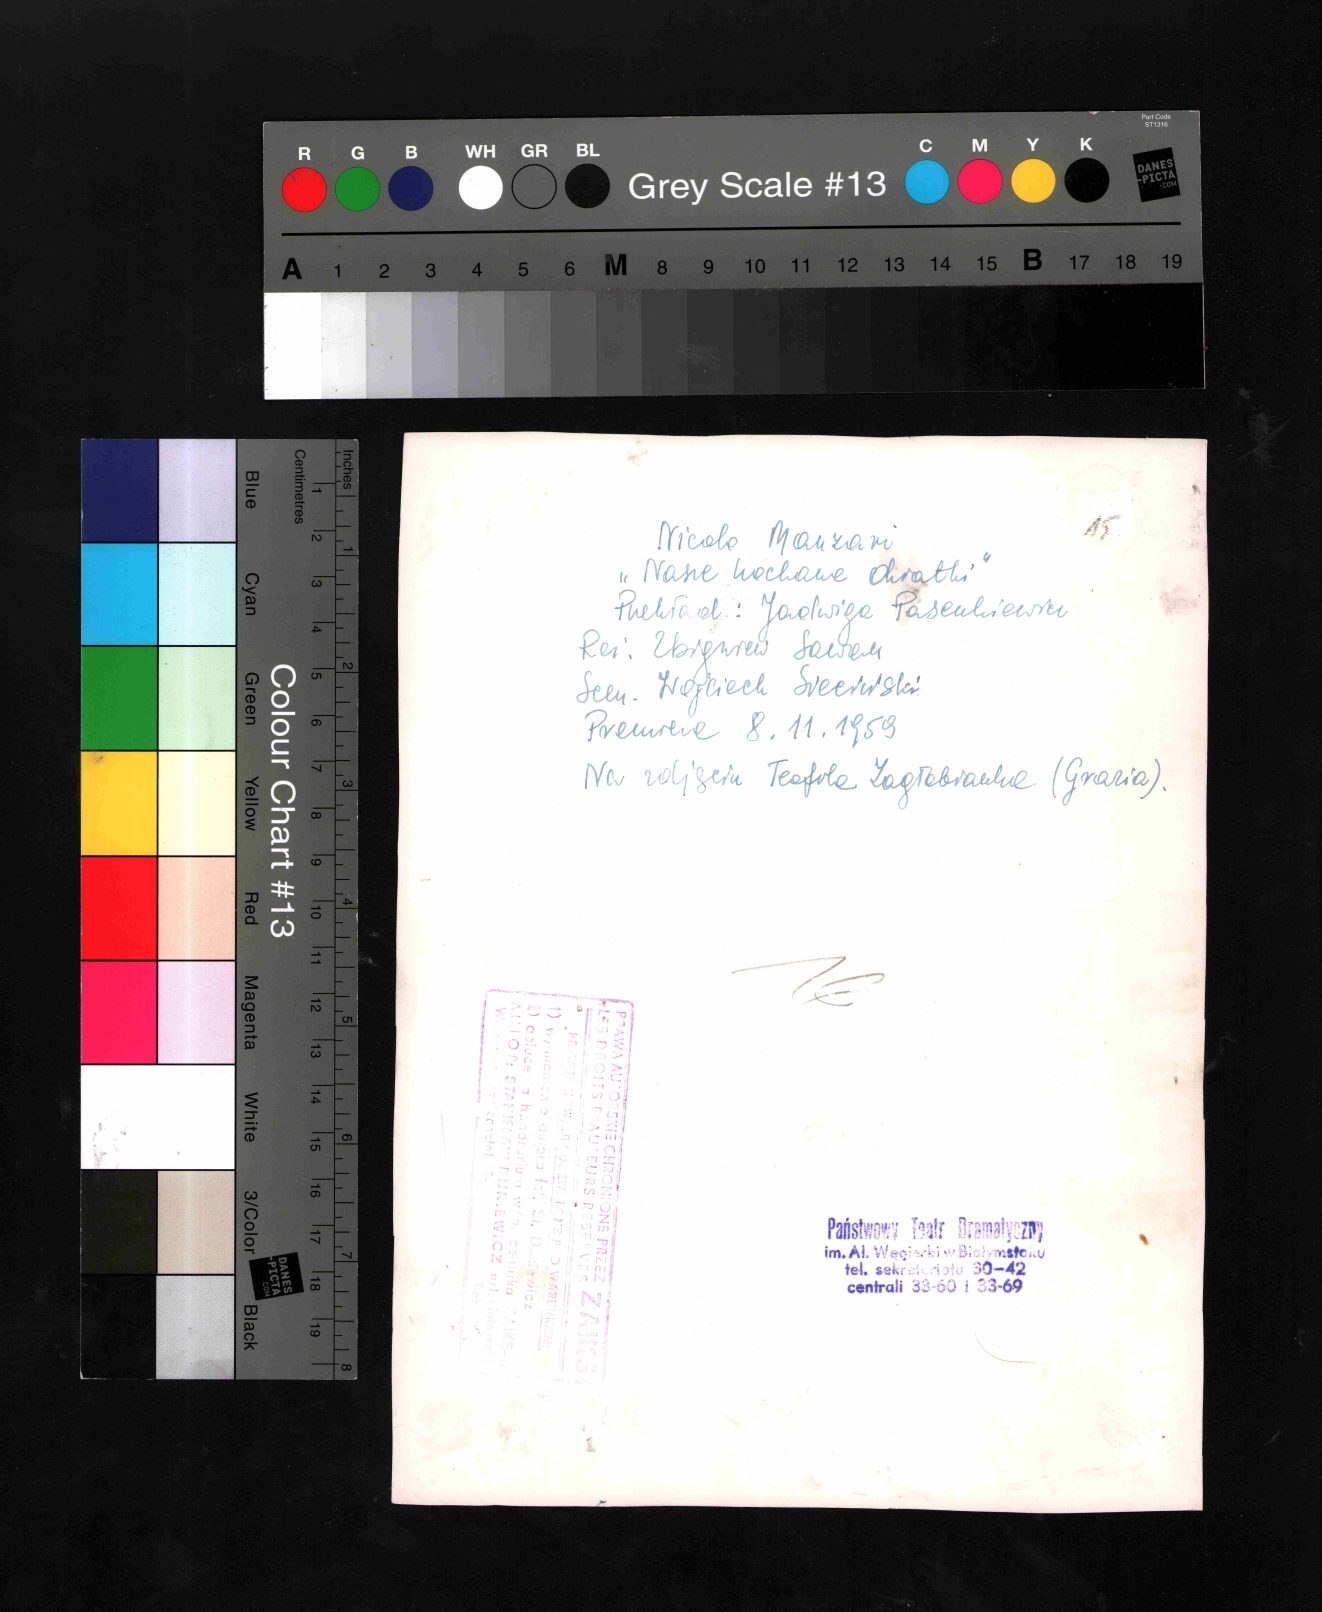 Part Code
ST1316
R G B WH GR BL Grey Scale #13 C M Y K
DANES
-PICTA
.COM
A 1 2 3 4 5 6 M 8 9 10 11 12 13 14 15 B 17 18 19
Inches
Centimetres
1 2 3 4 5 6 7 8 9 10 11 12 13 14 15 16 17 18 19
1 2 3 4 5 6 7 8
Colour Chart #13
Blue
Cyan
Green
Yellow
Red
Magenta
White
3/Color
Black
DANES
-PICTA
.COM
15
Nicolo Manzari
„Nasze kochane dziatki"
Przekład: Jadwiga Pasenkiewicz
Reż. Zbigniew Sawan
Scen. Wojciech Sieciński
Premiera 8.11.1959
Na zdjęciu Teofila Zagłobianka (Grazia).
PRAWA AUTORSKIE CHRONIONE PRZEZ ZAIKS
LES DROITS D'AUTEURS RESERVES
1) wymienienie autora fot. St.
2) opłacenia honorarium w/g cennika ZAIKS-u
AUTOR:
Państwowy Teatr Dramatyczny
im. Al. Węgierki w Białymstoku
tel. sekretariatu 30-42
centrali 33-60 i 33-69